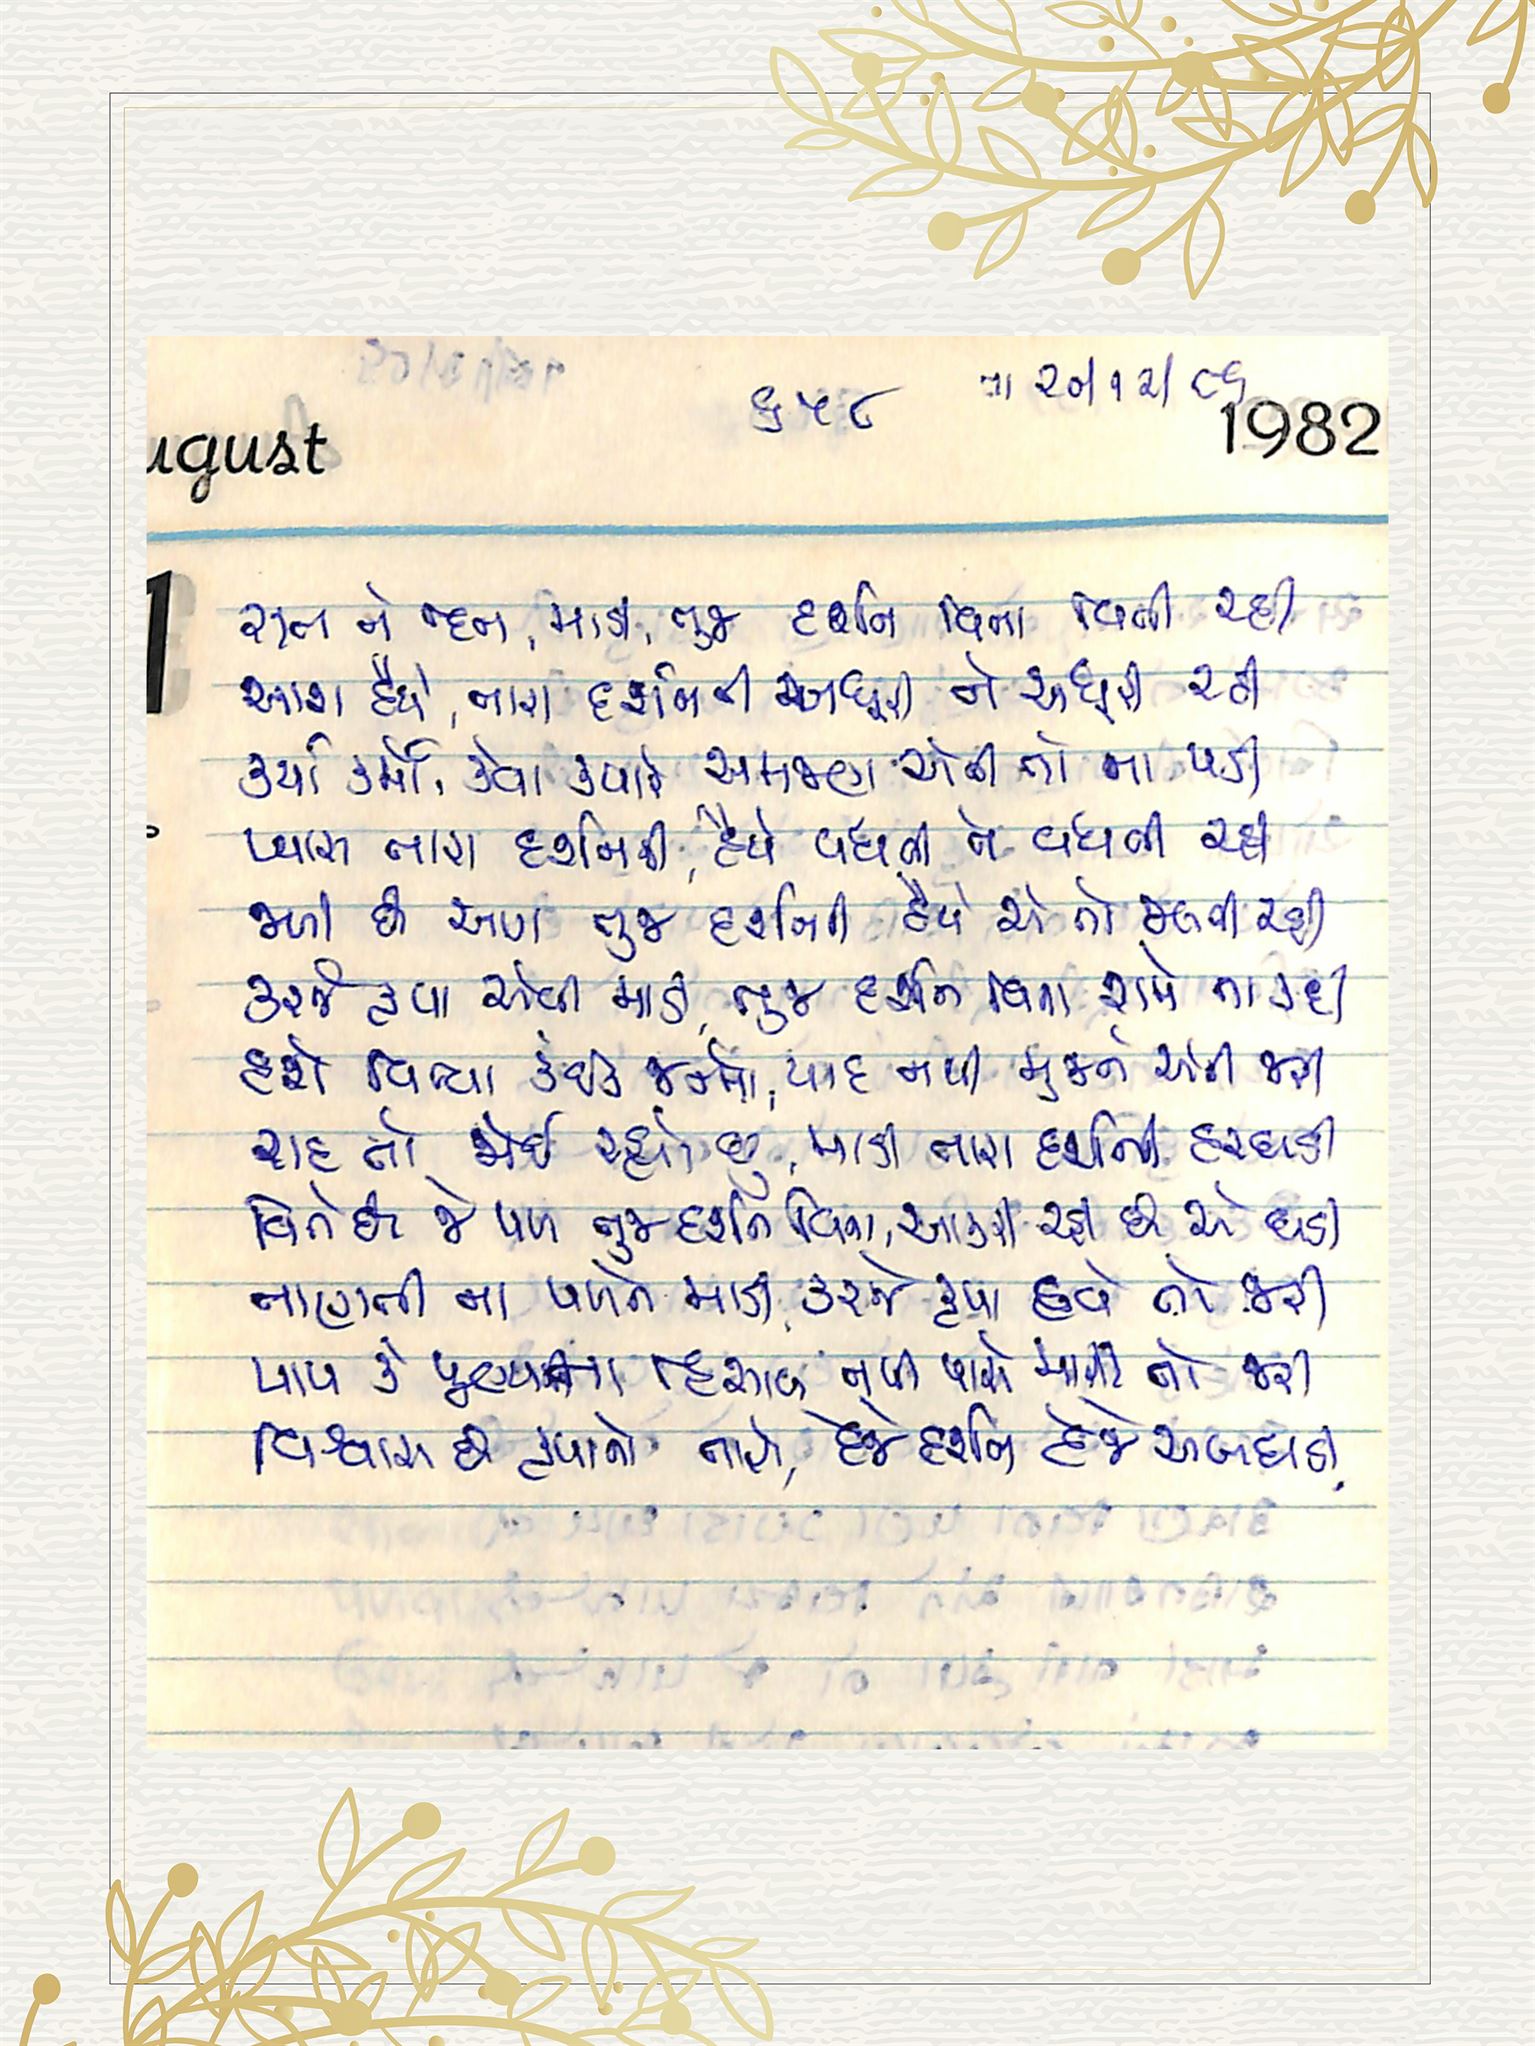 ૬૫૮ તા ૨૦/૧૨/૮૬
ugust 1982
1
રાત ને દિન, માડી, તુજ દર્શન વિના વિતી રહી
આશ હૈયે, તારા દર્શનની અધૂરી ને અધૂરી રહી
કર્યા કર્મો, કેવા ક્યારે સમજણ એની તો ના પડી
પ્યાસ તારા દર્શનની, હૈયે વધતી ને વધતી રહી
જળી છે આગ તુજ દર્શનની હૈયે એ તો જલતી રહી
કરજે કૃપા એવી માડી, તુજ દર્શન વિના શમે ના કદી
હશે વિત્યા કંઈક જન્મો, યાદ નથી મુજને એની જરી
રાહ તો જોઈ રહ્યો છું, માડી તારા દર્શનની હરઘડી
વિતે છે જે પળ તુજ દર્શન વિના, આકરી રહી છે એ ઘડી
તાણતી ના પળને માડી, કરજે કૃપા હવે તો જરી
પાપ કે પુણ્યના હિસાબ નથી પાસે મારી તો જરી
વિશ્વાસ છે કૃપાનો તારો, દેજે દર્શન દેજે આ ઘડી.